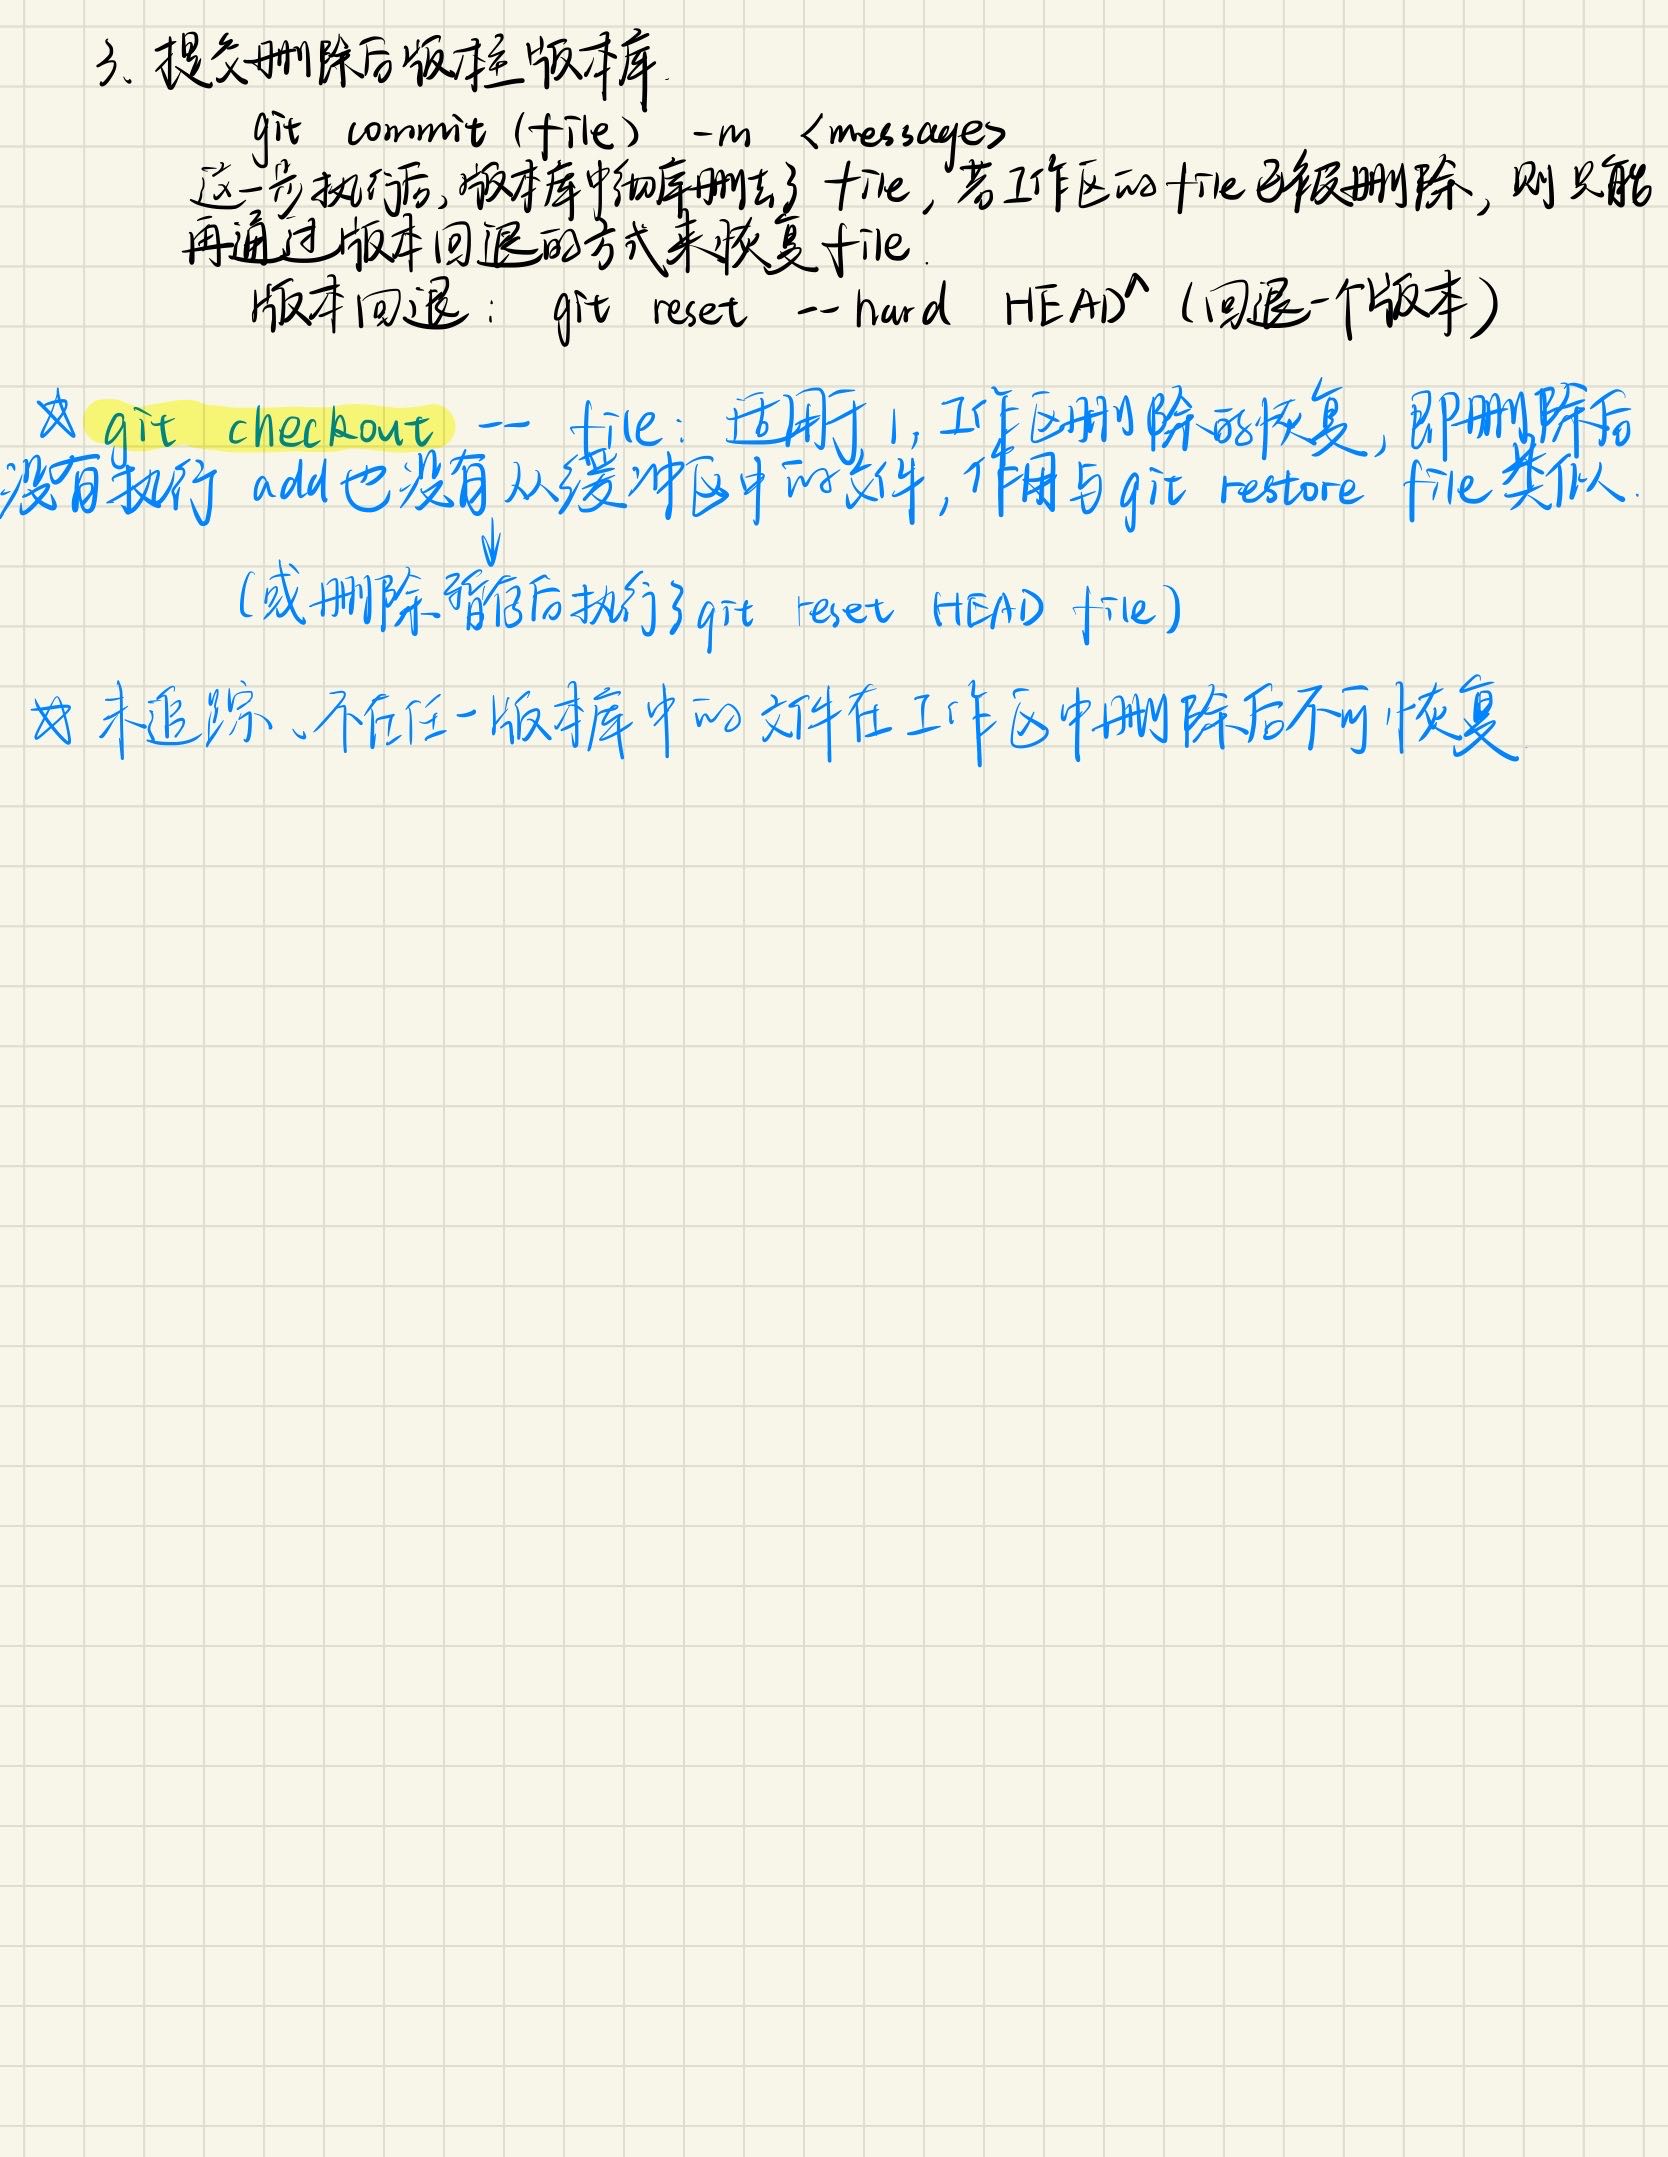 3、提交删除后版本至版本库.
git commit (file) -m <message>
这一步执行后,版本库中彻底删去了 file, 若工作区的 file 已经被删除, 则只能
再通过版本回退的方式来恢复 file.
版本回退: git reset --hard HEAD^ (回退一个版本)
☆ git checkout -- file: 适用于 1, 工作区删除的恢复, 即删除后
没有执行 add 也没有从缓冲区中的文件, 作用与 git restore file 类似.
↓
(或删除暂存后执行了 git reset HEAD file)
☆ 未追踪、不在任一版本库中的文件在工作区中删除后不可恢复.